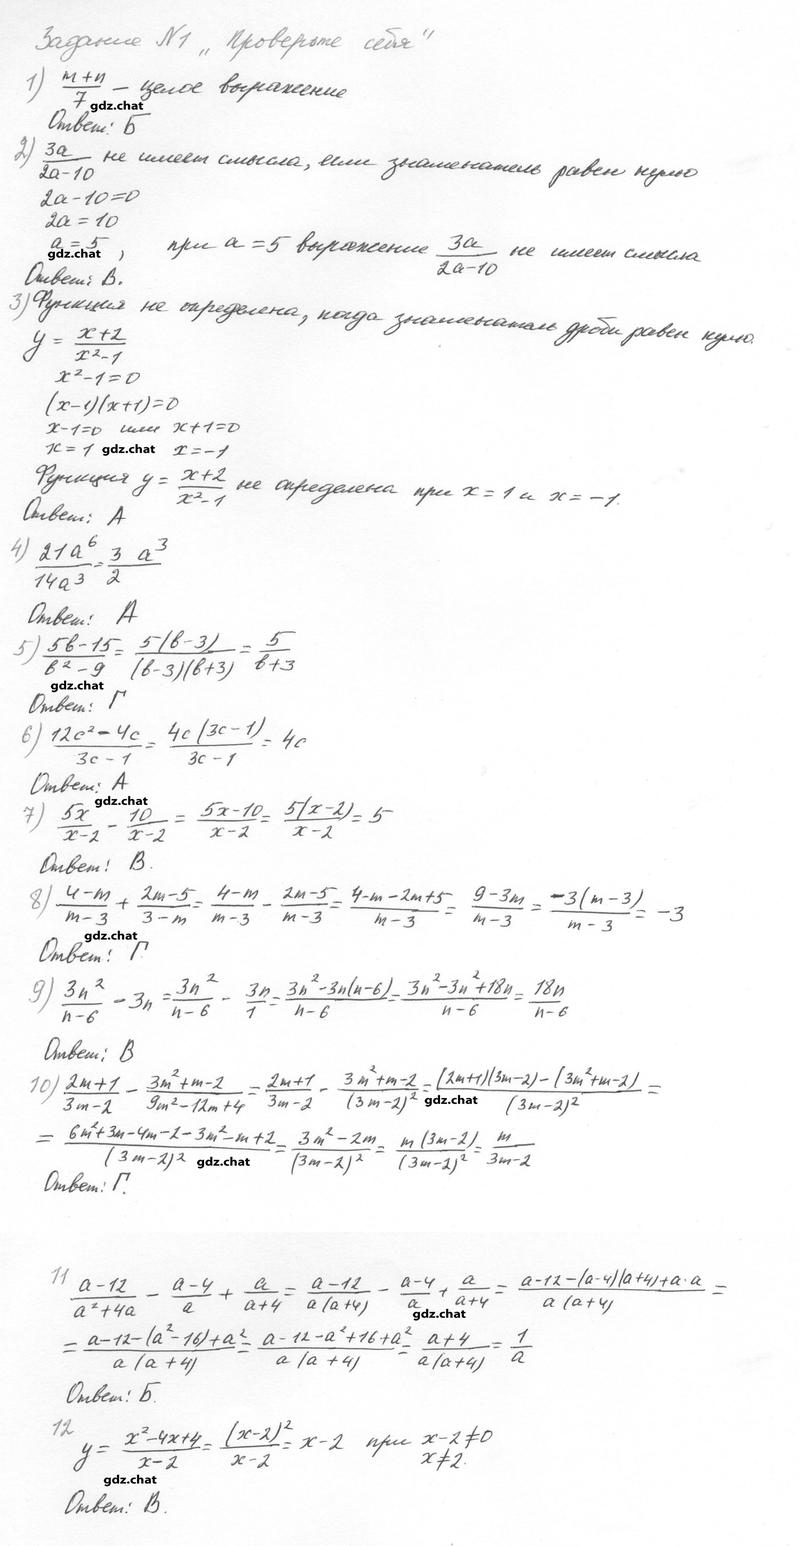 Задание №1 „Проверьте себя"
1) (m+n)/7 – целое выражение
gdz.chat
Ответ: Б
2) 3a/(2a-10) не имеет смысла, если знаменатель равен нулю
2a-10=0
2a=10
a=5, при a=5 выражение 3a/(2a-10) не имеет смысла
gdz.chat
Ответ: В.
3) Функция не определена, когда знаменатель дроби равен нулю.
y = (x+2)/(x²-1)
x²-1=0
(x-1)(x+1)=0
x-1=0 или x+1=0
x=1 gdz.chat x=-1
Функция y = (x+2)/(x²-1) не определена при x=1 и x=-1.
Ответ: А
4) 21a⁶/14a³ = 3/2 a³
Ответ: А
5) (5b-15)/(b²-9) = 5(b-3)/((b-3)(b+3)) = 5/(b+3)
gdz.chat
Ответ: Г
6) (12c²-4c)/(3c-1) = 4c(3c-1)/(3c-1) = 4c
Ответ: А
gdz.chat
7) 5x/(x-2) - 10/(x-2) = (5x-10)/(x-2) = 5(x-2)/(x-2) = 5
Ответ: В.
8) (4-m)/(m-3) + (2m-5)/(3-m) = (4-m)/(m-3) - (2m-5)/(m-3) = (4-m-2m+5)/(m-3) = (9-3m)/(m-3) = -3(m-3)/(m-3) = -3
gdz.chat
Ответ: Г.
9) 3n²/(n-6) - 3n = 3n²/(n-6) - 3n/1 = (3n²-3n(n-6))/(n-6) = (3n²-3n²+18n)/(n-6) = 18n/(n-6)
Ответ: В
10) (2m+1)/(3m-2) - (3m²+m-2)/(9m²-12m+4) = (2m+1)/(3m-2) - (3m²+m-2)/(3m-2)² = ((2m+1)(3m-2)-(3m²+m-2))/(3m-2)² =
gdz.chat
= (6m²+3m-4m-2-3m²-m+2)/(3m-2)² = (3m²-2m)/(3m-2)² = m(3m-2)/(3m-2)² = m/(3m-2)
gdz.chat
Ответ: Г.
11 (a-12)/(a²+4a) - (a-4)/a + a/(a+4) = (a-12)/(a(a+4)) - (a-4)/a + a/(a+4) = (a-12-(a-4)(a+4)+a·a)/(a(a+4)) =
gdz.chat
= (a-12-(a²-16)+a²)/(a(a+4)) = (a-12-a²+16+a²)/(a(a+4)) = (a+4)/(a(a+4)) = 1/a
Ответ: Б.
12 y = (x²-4x+4)/(x-2) = (x-2)²/(x-2) = x-2 при x-2≠0
x≠2.
gdz.chat
Ответ: В.